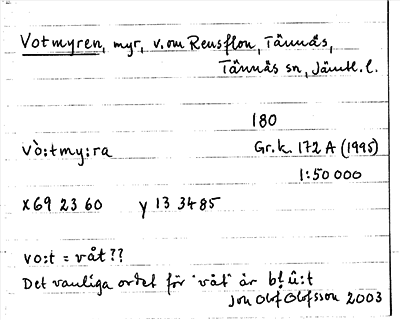 Votmyren, myr, v. om Rensflon, Tännäs,
Tännäs sn, Jämtl. l.
180
vò:tmy:ra Gr.k. 172 A (1995)
1:50 000
x 69 23 60 y 13 3485
vo:t = våt??
Det vanliga ordet för "våt" är bḷû:t
Jon Olof Olofsson 2003